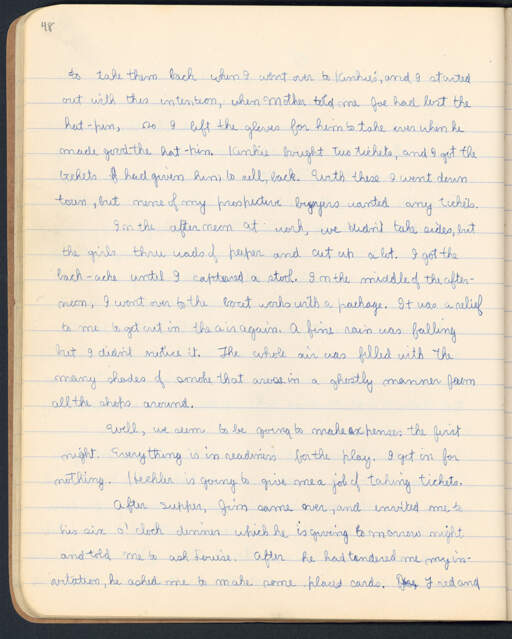 48
to take them back when I went over to Kinhie's, and I started
out with this intention, when Mother told me Joe had lost the
hat-pin, so I left the gloves for him to take over when he
made good the hat-pin. Kinhie bought two tickets, and I got the
tickets I had given him, to sell, back. With these I went down
town, but none of my prospective buyers wanted any tickets.
In the afternoon at work, we didn't take sides, but
the girls threw wads of paper and cut up a lot. I got the
back-ache until I captured a stool. In the middle of the after-
noon, I went over to the boat works with a package. It was a relief
to me to get out in the air again. A fine rain was falling
but I didn't notice it. The whole air was filled with the
many shades of smoke that arose in a ghostly manner from
all the shops around.
Well, we seem to be going to make expenses the first
night. Everything is in readiness for the play. I get in for
nothing. Heehler is going to give me a job of taking tickets.
After supper, Jim came over, and invited me to
his six o'clock dinner which he is giving tomorrow night
and told me to ask Louise. After he had tendered me my in-
vitation, he asked me to make some place cards. Fred and